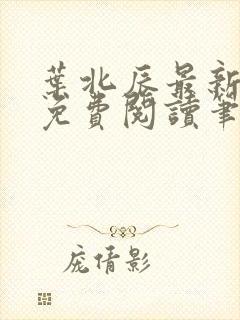 葉北辰最新
免費閱讀筆
庞倩影